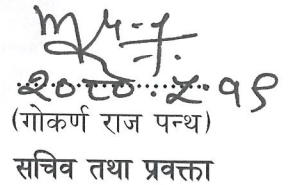 २०८०.५.१९
(गोकर्ण राज पन्थ)
सचिव तथा प्रवक्ता